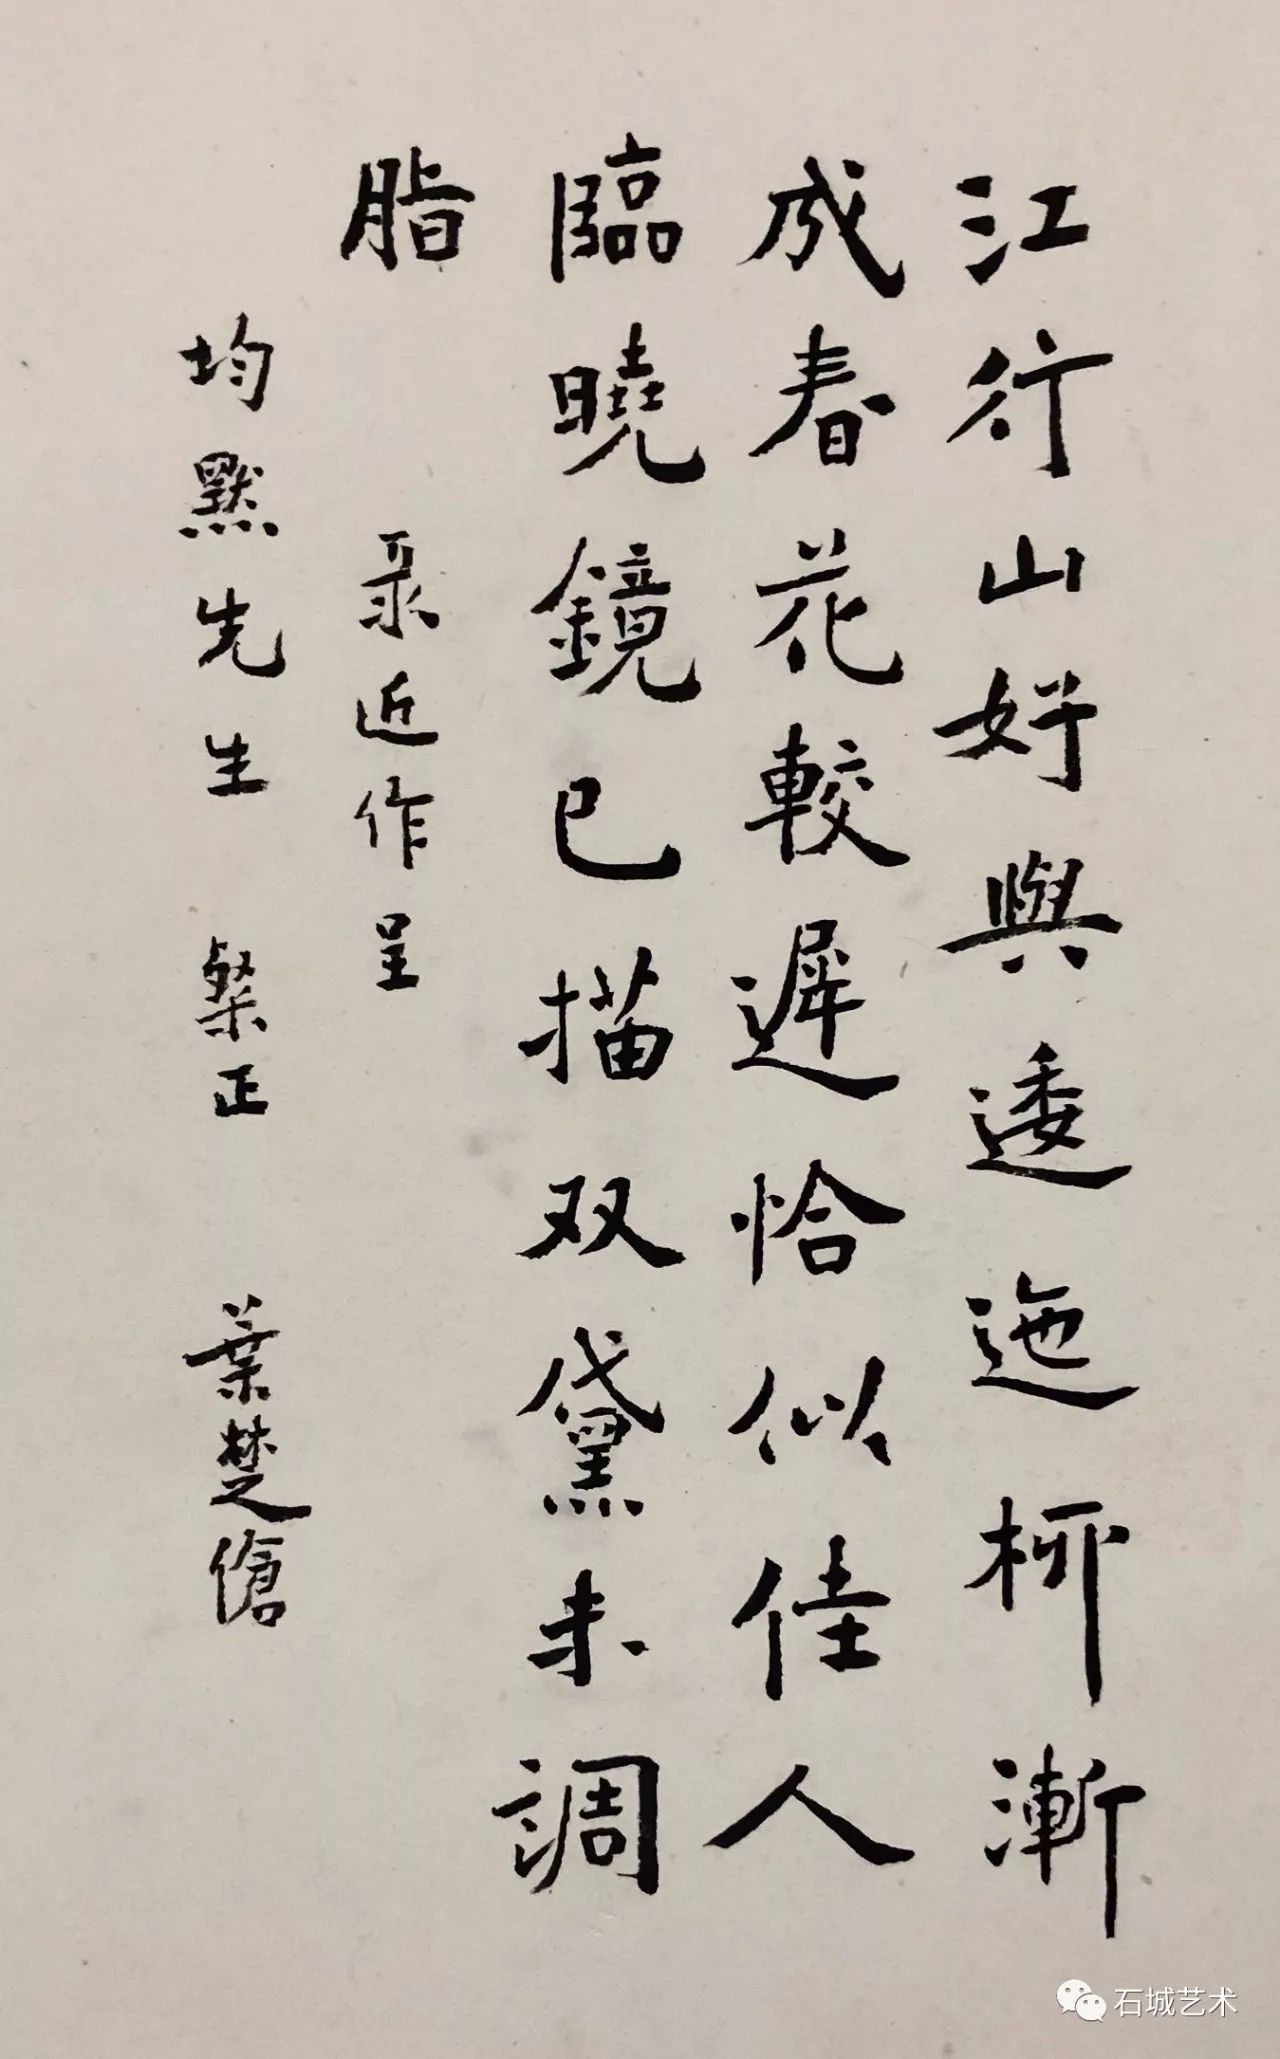 江行山好與逶迤柳漸
成春花較遲恰似佳人
臨曉鏡已描双黛未調
脂
录近作呈
均默先生 粲正 葉楚傖
石城艺术